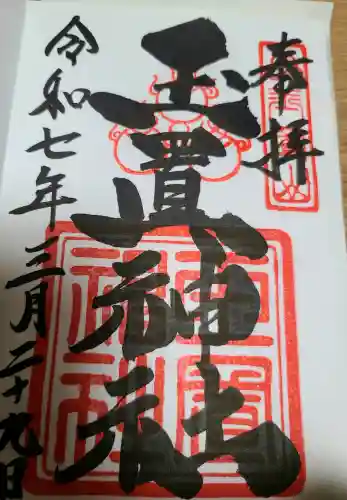 奉拝
玉置神社
令和七年三月二十九日